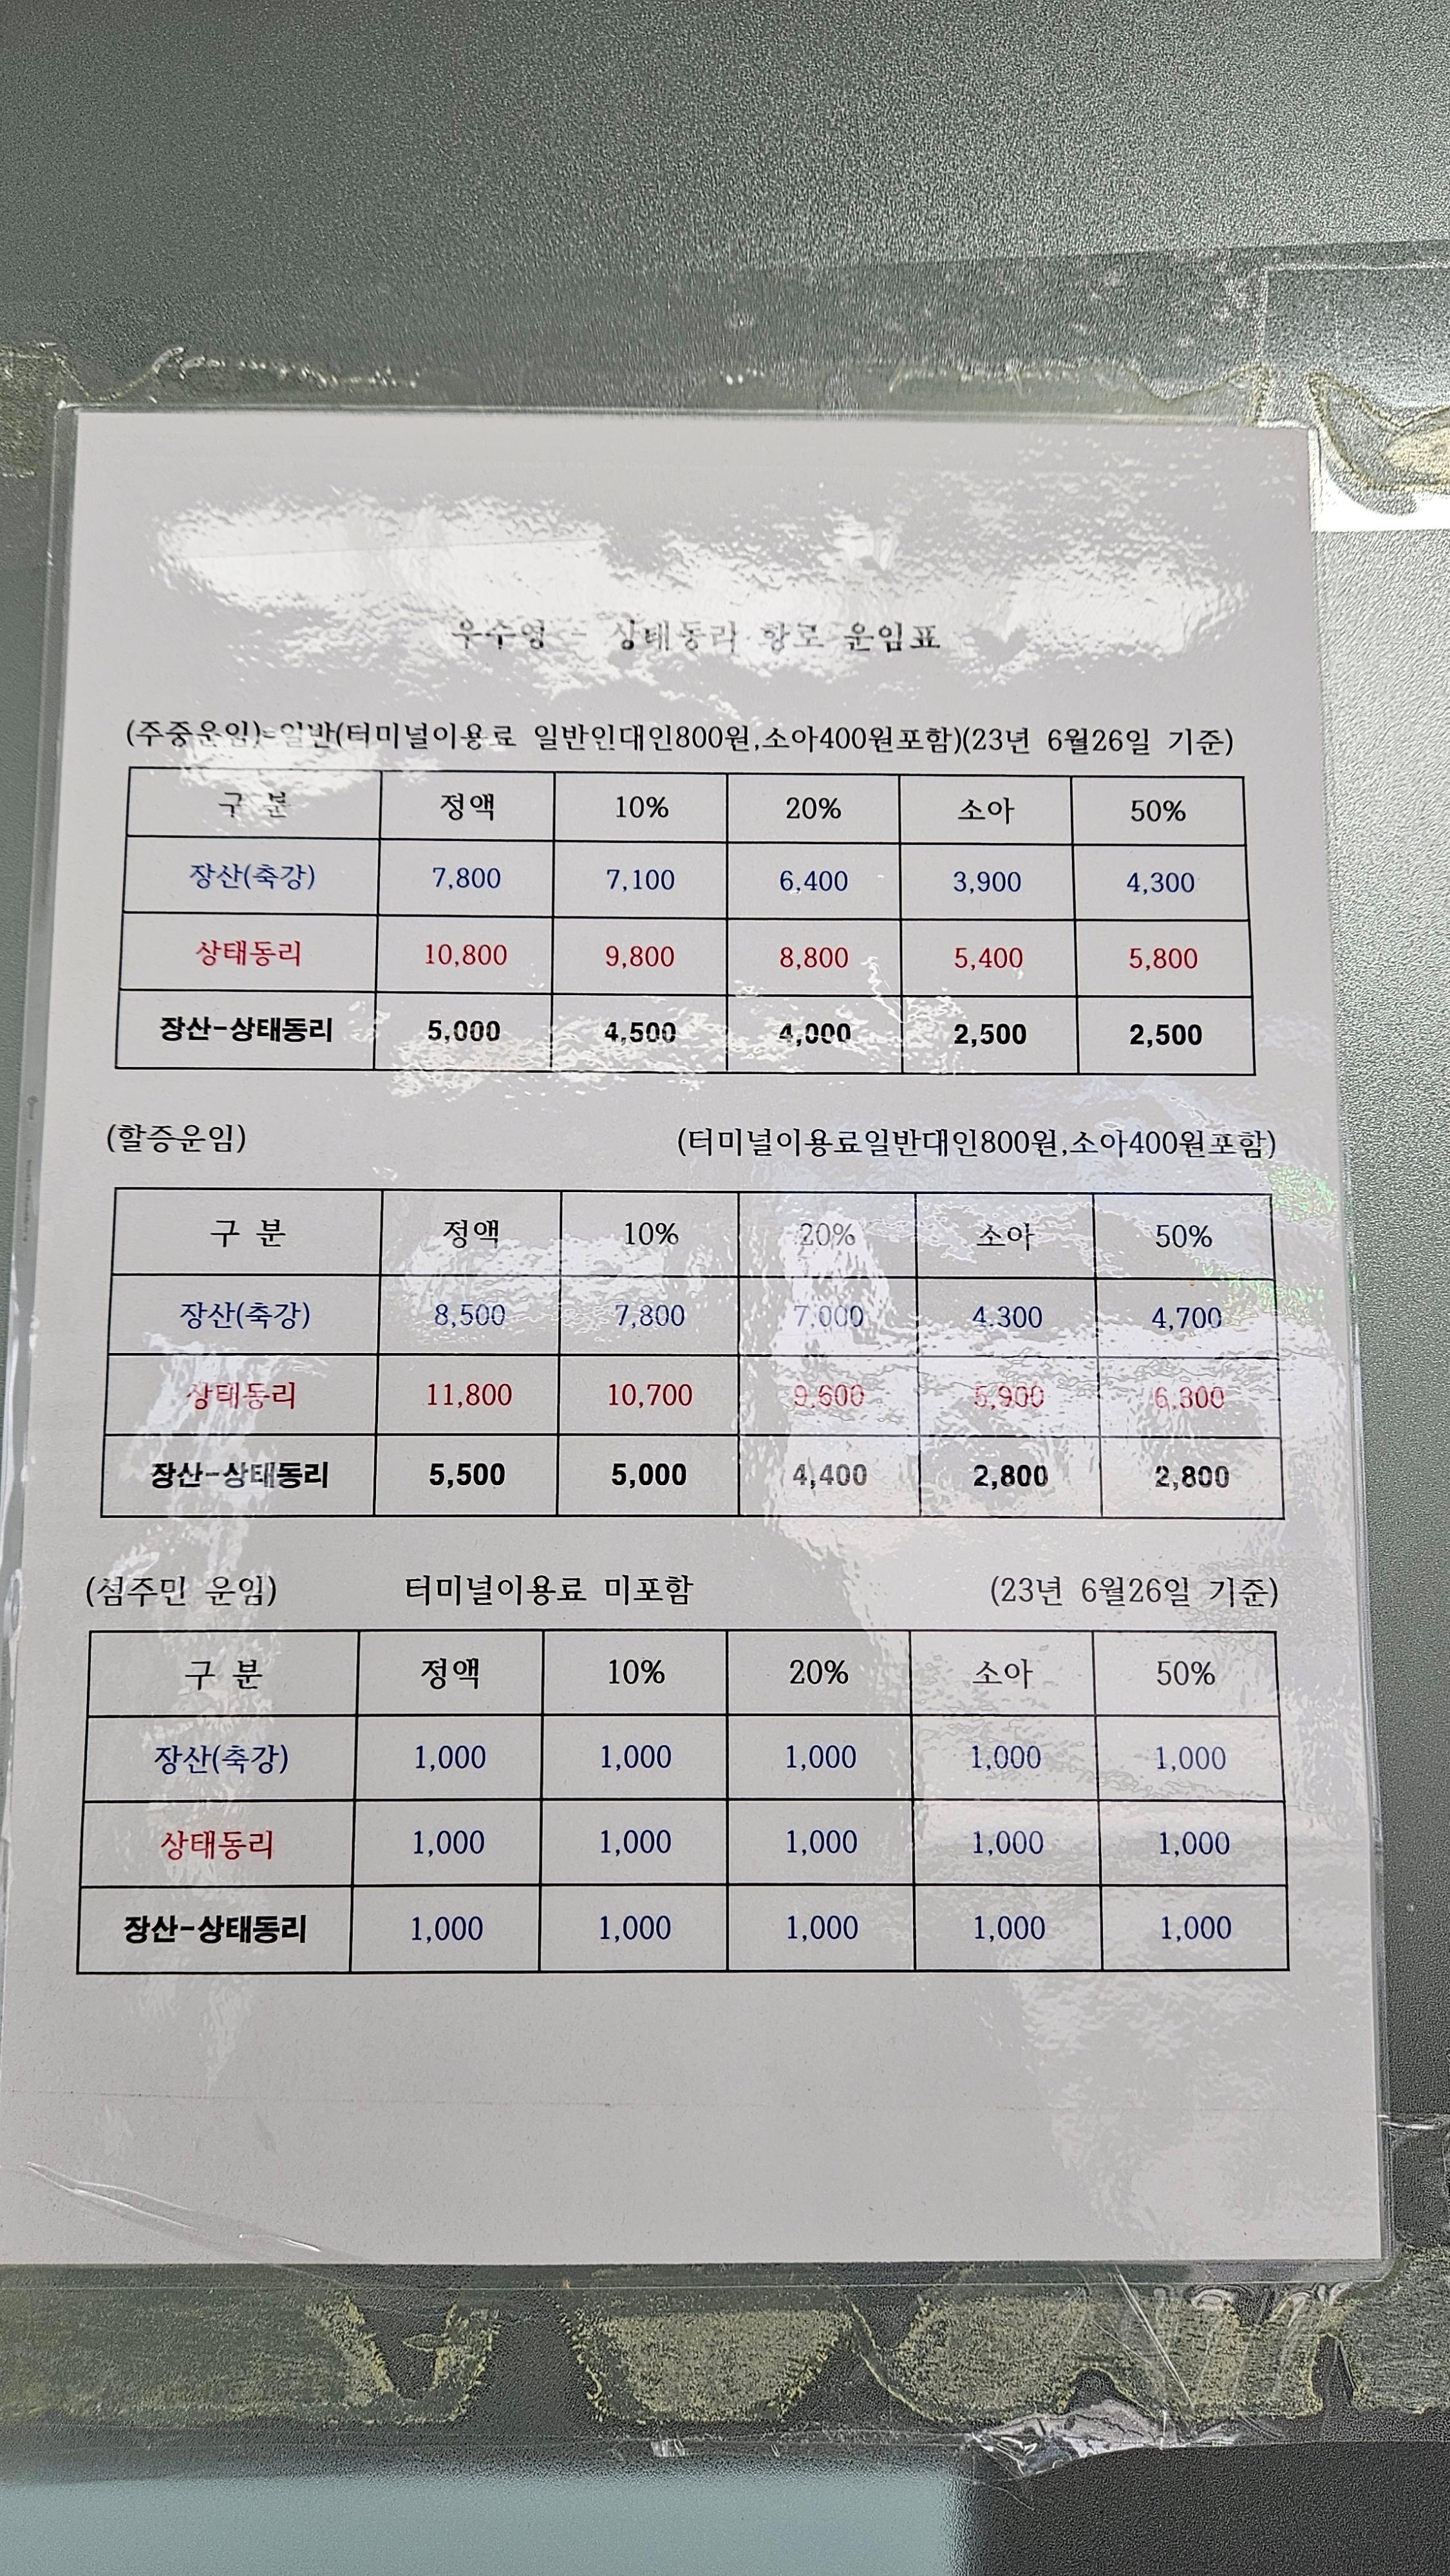 우수영 - 상태동리 항로 운임표
(주중운임)=일반(터미널이용료 일반인대인800원,소아400원포함)(23년 6월26일 기준)
구 분 정액 10% 20% 소아 50%
장산(축강) 7,800 7,100 6,400 3,900 4,300
상태동리 10,800 9,800 8,800 5,400 5,800
장산-상태동리 5,000 4,500 4,000 2,500 2,500
(할증운임) (터미널이용료일반대인800원,소아400원포함)
구 분 정액 10% 20% 소아 50%
장산(축강) 8,500 7,800 7,000 4,300 4,700
상태동리 11,800 10,700 9,600 5,900 6,300
장산-상태동리 5,500 5,000 4,400 2,800 2,800
(섬주민 운임) 터미널이용료 미포함 (23년 6월26일 기준)
구 분 정액 10% 20% 소아 50%
장산(축강) 1,000 1,000 1,000 1,000 1,000
상태동리 1,000 1,000 1,000 1,000 1,000
장산-상태동리 1,000 1,000 1,000 1,000 1,000